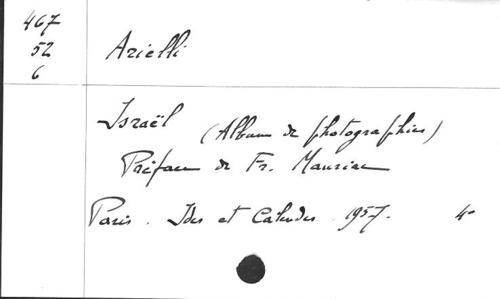 467
52
6
Arielli
Israël (Album de photographies)
Préface de Fr. Mauriac
Paris. Ides et Calendes. 1957. 4°